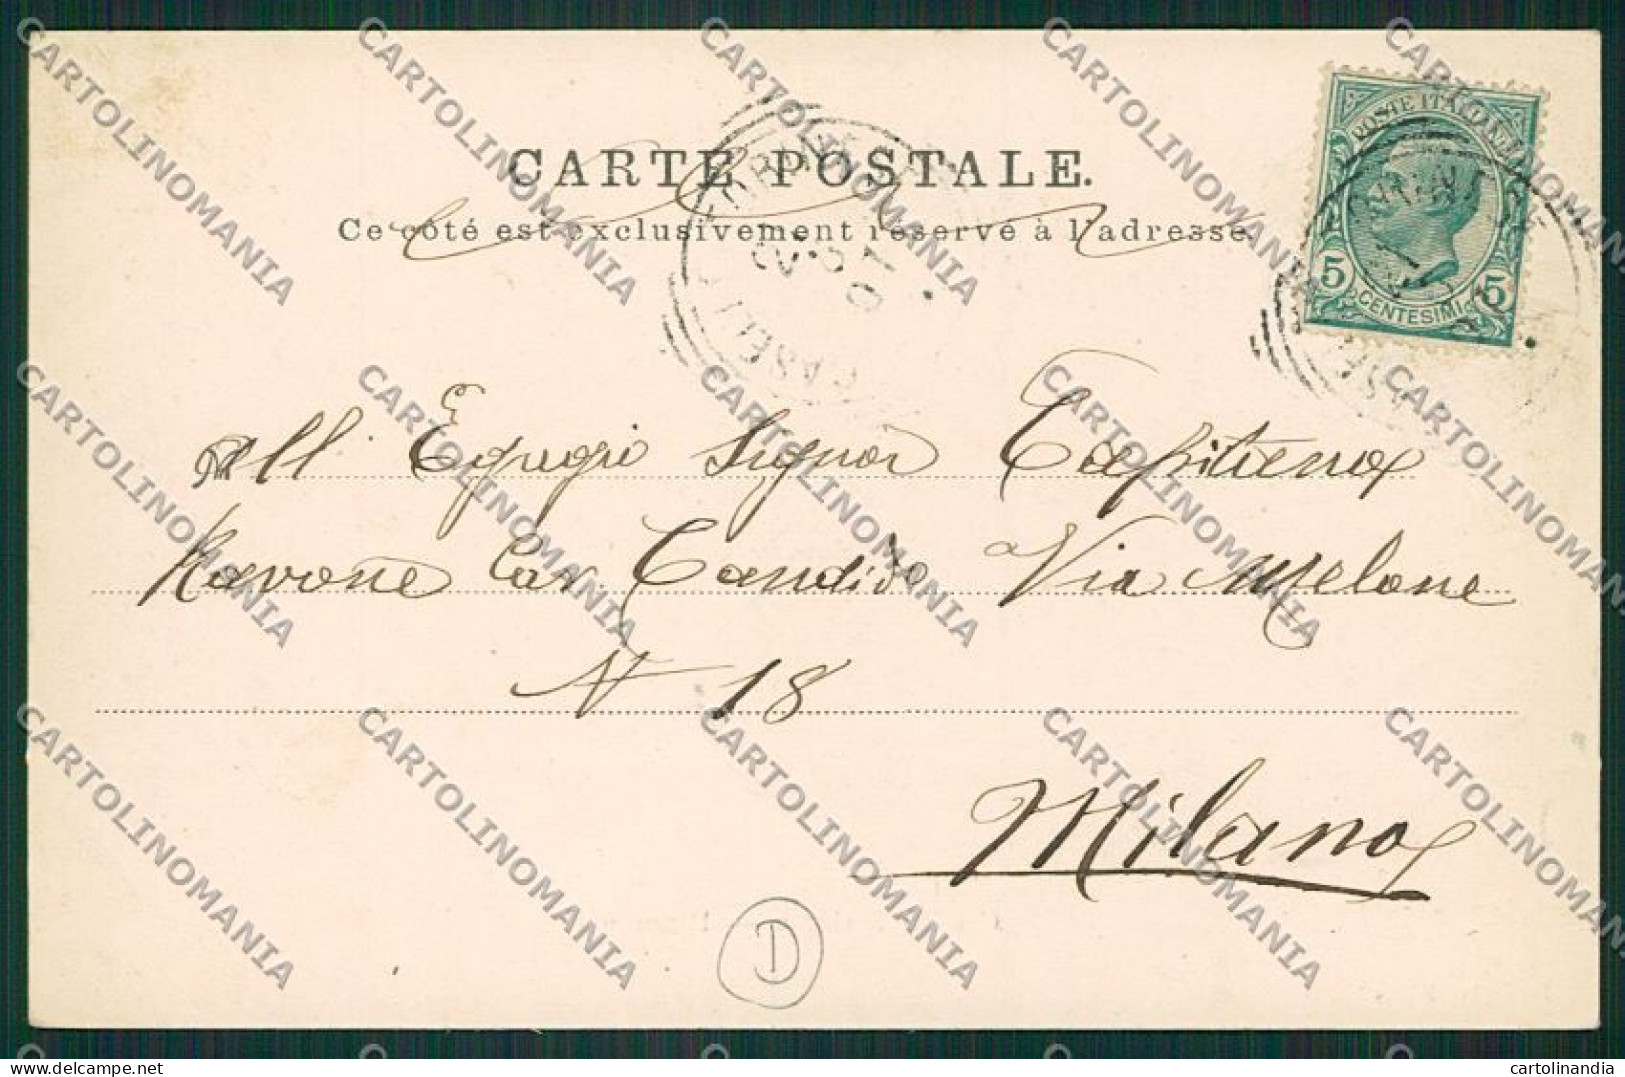 CARTE POSTALE.
Ce côté est exclusivement réservé à l'adresse.
POSTE ITALIANE
5 CENTESIMI 5
all Egregri Signor Capitano
Ravone Cav Candido Via Melone
N 18
Milano
D
CARTOLINOMANIA
cartolinandia